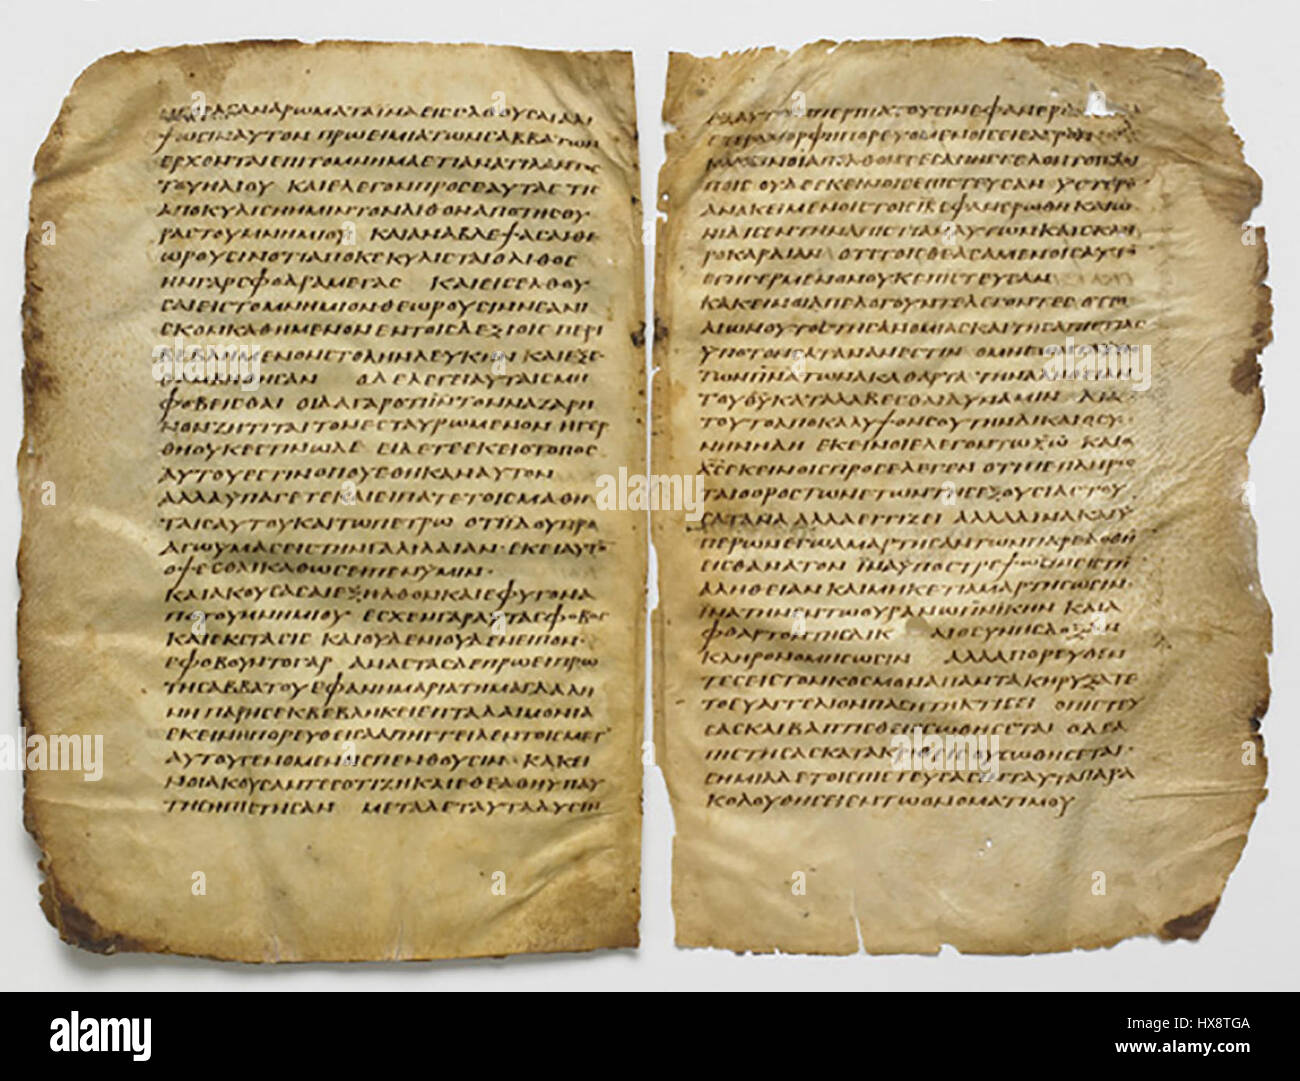 ΗΓΟΡΑΣΑΝΑΡΩΜΑΤΑΪΝΑΕΙCΕΛΘΟΥCΑΙΑΛΙ
ΨΩCΙΝΑΥΤΟΝ ΠΡΩΕΙΜΙΑΤΩΝCΑΒΒΑΤΩΝ
ΕΡΧΟΝΤΑΙΕΠΙΤΟΜΝΗΜΑΕΤΙΑΝΑΤΙΛΑΝΤΟC
ΤΟΥΗΛΙΟΥ ΚΑΙΕΛΕΓΟΝΠΡΟCΕΑΥΤΑCΤΙC
ΑΠΟΚΥΛΙCΗΗΜΙΝΤΟΝΛΙΘΟΝΑΠΟΤΗCΘΥ
ΡΑCΤΟΥΜΝΗΜΙΟΥ ΚΑΙΑΝΑΒΛΕΨΑCΑΙΘΕ
ΩΡΟΥCΙΝΟΤΙΑΠΟΚΕΚΥΛΙCΤΑΙΟΛΙΘΟC
ΗΝΓΑΡCΦΟΔΡΑΜΕΓΑC ΚΑΙΕΙCΕΛΘΟΥ
CΑΙΕΙCΤΟΜΝΗΜΙΟΝΘΕΩΡΟΥCΙΝΝΕΑΝΙ
CΚΟΝΚΑΘΗΜΕΝΟΝΕΝΤΟΙCΔΕΞΙΟΙCΠΕΡΙ
ΒΕΒΛΗΜΕΝΟΝCΤΟΛΗΝΛΕΥΚΗΝ ΚΑΙΕΞΕ
ΘΑΜΒΗΘΗCΑΝ ΟΔΕΛΕΓΕΙΑΥΤΑΙCΜΗ
ΦΟΒΕΙCΘΑΙ ΟΙΔΑΓΑΡΟΤΙΙΝΤΟΝΝΑΖΑΡΗ
ΝΟΝΖΗΤΙΤΑΙΤΟΝΕCΤΑΥΡΩΜΕΝΟΝ ΗΓΕΡ
ΘΗΟΥΚΕCΤΙΝΩΔΕ ΕΙΔΕΤΕΕΚΕΙΟΤΟΠΟC
ΑΥΤΟΥΕCΤΙΝΟΠΟΥΕΘΗΚΑΝΑΥΤΟΝ
ΑΛΛΑΥΠΑΓΕΤΕΚΑΙΕΙΠΑΤΕΤΟΙCΜΑΘΗ
ΤΑΙCΑΥΤΟΥΚΑΙΤΩΠΕΤΡΩ ΟΤΙΙΔΟΥΠΡΟ
ΑΓΩΥΜΑCΕΙCΤΗΝΓΑΛΙΛΑΙΑΝ·ΕΚΕΙΑΥΤΟ
ΟΨΕCΘΑΙΚΑΘΩCΕΙΠΕΝΥΜΙΝ·
ΚΑΙΑΚΟΥCΑCΑΙΕΞΗΛΘΟΝΚΑΙΕΦΥΓΟΝΑ
ΠΟΤΟΥΜΝΗΜΙΟΥ ΕCΧΕΝΓΑΡΑΥΤΑCΦΟΒΟC
ΚΑΙΕΚCΤΑCΙC ΚΑΙΟΥΔΕΝΙΟΥΔΕΝΕΙΠΟΝ·
ΕΦΟΒΟΥΝΤΟΓΑΡ ΑΝΑCΤΑCΔΕΠΡΩΕΙΠΡΩ
ΤΗCΑΒΒΑΤΟΥΕΦΑΝΗΜΑΡΙΑΤΗΜΑΓΔΑΛΗ
ΝΗΠΑΡΗCΕΚΒΕΒΛΗΚΕΙΕΠΤΑΔΑΙΜΟΝΙΑ
ΕΚΕΙΝΗΠΟΡΕΥΘΕΙCΑΑΠΗΓΓΕΙΛΕΝΤΟΙCΜΕΤ
ΑΥΤΟΥΓΕΝΟΜΕΝΟΙCΠΕΝΘΟΥCΙΝ·ΚΑΚΕΙ
ΝΟΙΑΚΟΥCΑΝΤΕCΟΤΙΖΗΚΑΙΕΘΕΑΘΗΥΠΑΥ
ΤΗCΗΠΙCΤΗCΑΝ ΜΕΤΑΔΕΤΑΥΤΑΔΥCΙΝ
ΕΞΑΥΤΩΝΠΕΡΙΠΑΤΟΥCΙΝΕΦΑΝΕΡΩΘΗ
ΕΤΕΡΑΜΟΡΦΗΠΟΡΕΥΟΜΕΝΟΙCΕΙCΑΓΡΟΝ
ΚΑΚΕΙΝΟΙΑΠΕΛΘΟΝΤΕCΑΠΗΓΓΕΙΛΟΝΤΟΙCΛΟΙ
ΠΟΙC ΟΥΔΕΕΚΕΙΝΟΙCΕΠΙCΤΕΥCΑΝ ΥCΤΕΡΟ
ΑΝΑΚΕΙΜΕΝΟΙCΤΟΙCΙΒΕΦΑΝΕΡΩΘΗΚΑΙΩ
ΝΙΔΙCΕΝΤΗΝΑΠΙCΤΙΑΝΑΥΤΩΝΚΑΙCΚΛΗ
ΡΟΚΑΡΔΙΑΝ ΟΤΙΤΟΙCΘΕΑCΑΜΕΝΟΙCΑΥΤΟ
ΕΓΗΓΕΡΜΕΝΟΝΟΥΚΕΠΙCΤΕΥCΑΝ
ΚΑΚΕΙΝΟΙΑΠΕΛΟΓΟΥΝΤΕΛΕΓΟΝΤΕCΟΤΙΟ
ΑΙΩΝΟΥΤΟCΤΗCΑΝΟΜΙΑCΚΑΙΤΗCΑΠΙCΤΙΑC
ΥΠΟΤΟΝCΑΤΑΝΑΝΕCΤΙΝ ΟΜΗΕΩΝΤΑΥΠΟ
ΤΩΝΠΝΑΤΩΝΑΚΑΘΑΡΤΑ ΤΗΝΑΛΗΘΕΙΑΝ
ΤΟΥΘΥΚΑΤΑΛΑΒΕCΘΑΙΔΥΝΑΜΙΝ ΔΙΑ
ΤΟΥΤΟΑΠΟΚΑΛΥΨΟΝCΟΥΤΗΝΔΙΚΑΙΟCΥ
ΝΗΝΗΔΗ ΕΚΕΙΝΟΙΕΛΕΓΟΝΤΩΧΩ ΚΑΙΟ
ΧCΕΚΕΙΝΟΙCΠΡΟCΕΛΕΓΕΝ ΟΤΙΠΕΠΛΗΡΩ
ΤΑΙΟΟΡΟCΤΩΝΕΤΩΝΤΗCΕΞΟΥCΙΑCΤΟΥ
CΑΤΑΝΑ ΑΛΛΑΕΓΓΙΖΕΙ ΑΛΛΑΔΙΝΑΚΑΙΥ
ΠΕΡΩΝΕΓΩΑΜΑΡΤΗCΑΝΤΩΝΠΑΡΕΔΟΘΗ
ΕΙCΘΑΝΑΤΟΝ ΪΝΑΥΠΟCΤΡΕΨΩCΙΝΕΙCΤΗ
ΑΛΗΘΕΙΑΝ ΚΑΙΜΗΚΕΤΙΑΜΑΡΤΗCΩCΙΝ·
ΪΝΑΤΗΝΕΝΤΩΟΥΡΑΝΩΠΝΙΚΗΝ ΚΑΙΑ
ΦΘΑΡΤΟΝΤΗCΔΙΚ ΑΙΟCΥΝΗCΔΟΞΑΝ
ΚΛΗΡΟΝΟΜΗCΩCΙΝ ΑΛΛΑΠΟΡΕΥΘΕΝ
ΤΕCΕΙCΤΟΝΚΟCΜΟΝΑΠΑΝΤΑΚΗΡΥΞΑΤΕ
ΤΟΕΥΑΓΓΕΛΙΟΝΠΑCΗΤΗΚΤΙCΕΙ ΟΠΙCΤΕΥ
CΑCΚΑΙΒΑΠΤΙCΘΕΙCCΩΘΗCΕΤΑΙ ΟΔΕΑ
ΠΙCΤΗCΑCΚΑΤΑΚΡΙΘΕΙCΟΥCΩΘΗCΕΤΑΙ·
CΗΜΙΑΔΕΤΟΙCΠΙCΤΕΥCΑCΙΝΤΑΥΤΑΠΑΡΑ
ΚΟΛΟΥΘΗCΕΙΕΝΤΩΟΝΟΜΑΤΙΜΟΥ
alamy stock photo
HX8TGA
www.alamy.com